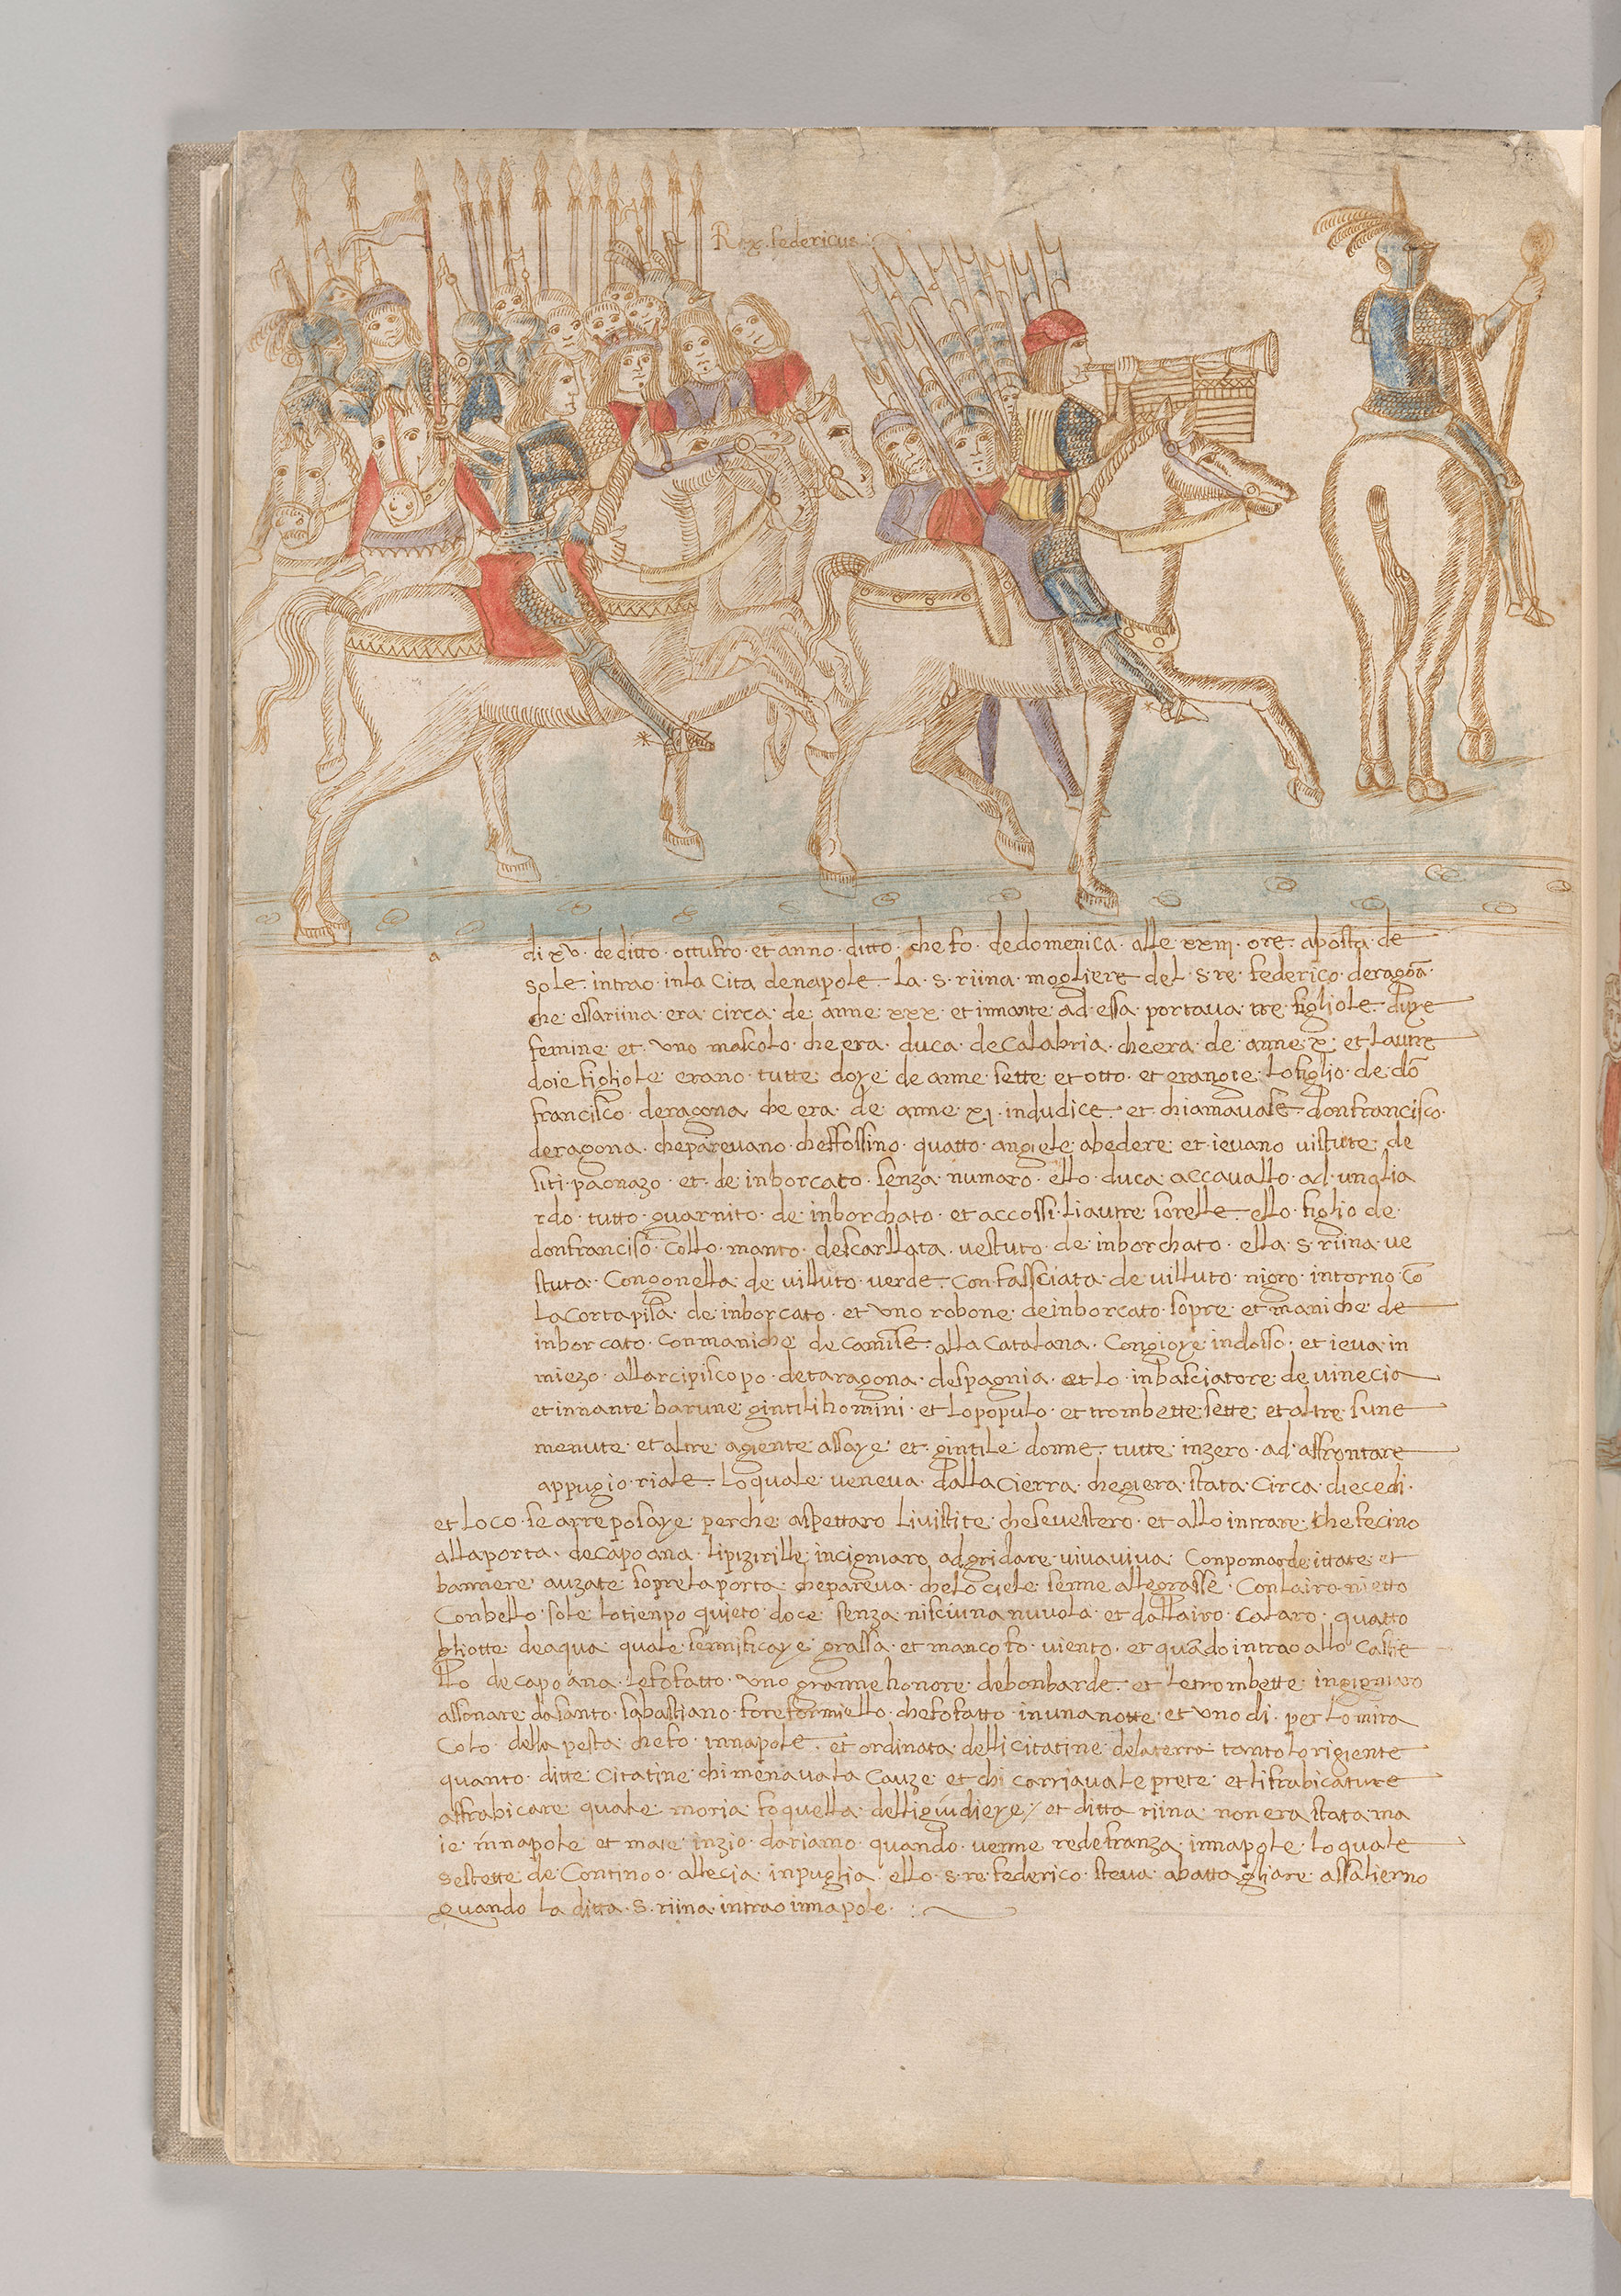 Rex . federicus :
a
di xv . de ditto . ottufro . et anno . ditto . che fo . de domenica . alle xxiii . ore . aposta de
sole . intrao . inla Cita denapole . La . s . riina . mogliere del . s . re . federico . deragoā .
che essariina . era circa . de . anne . xxx . et innante ad essa . portava . tre . figliole . duye
femine . et . uno mascolo . che era . duca . deCalabria . cheera . de anne . x . et Lautre
doie figliole erano . tutte doye de anne . sette et otto . et erangie . Lofiglio . de . dō
francisco . deragona che era . de anne xi . indudice . et . chiamavase . donfrancisco .
deragona . cheparevano . chessossino . quatto . angiele abedere . et . ievano vistute de
siti . paonazo . et . de inborcato . senza numaro . ello duca accavallo . ad unglia
rdo . tutto . guarnito . de inborchato . et accossi . Liautre sorelle . ello . figlio de
donfrancisō . Collo . manto . descarllata . vestuto . de inborchato . ella . s . riina . ve
stuta . Congonella de villuto verde . Confassciata de villuto nigro intorno . cō
Lacortapisā . de inborcato . et uno robone . deinborcato . sopre . et maniche de
inborcato . conmaniche de camise . alla Catalana . Congioye indosso . et ieva in
miezo . allarcipiscopo . detaragona . despagnia . et Lo inbasciatore de vinecia
et innante barune gintilihomini . et Lopopulo . et trombette sette et altre sune
menute . et altre agiente assaye et gintile donne . tutte . inzero . ad . affrontare
appugio riale . Loquale veneva dallaCierra . chegiera . stata . Circa . diece di .
et Loco . se arreposaye perche aspettaro Livistite . chesevestero . et allo intrare . chefecino
allaporta . decapoana . Lipizirille incigniaro adgridare . vivaviva Conpomarde ittate et
bannere auzate soprelaporta chepareva . chelo ciele senne allegrasse . Conlairo nietto
Conbello . sole Lotienpo quieto doce senza nisciuna nuvola . et dallairo . Calaro . quatto
gliotte deaqua quale sennificaye grassa . et manco fo . viento . et quādo intrao allo Caste
llo decapoana . Lefofatto . uno granne honore . debonbarde . et Letrombette ingigniaro
assonare dasanto . sabastiano . foreformiello . chefofatto . inunanotte . et uno di . per Lomira
Colo . della pesta chefo . innapole . et ordinata dellicitatine delaterra tanto Lorigiente
quanto . ditte Citatine . chi menavala Cauze . et chi carriavale prete . et lifrabicature
affrabicare quale moria foquella delligiudieye / et ditta riina . non era stata ma
ie innapole et maie inzio . dariamo . quando . venne redefranza innapole . Lo quale
sestette de Continoo . allecia . inpuglia . ello . s . re . federico . steva abattagliare assalierno
quando La ditta . s . riina . intrao innapole . :